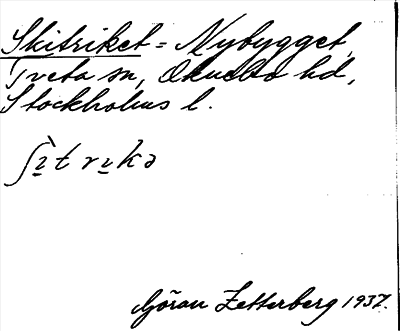 Skitriket = Nybygget,
Tveta sn, Öknebo hd,
Stockholms l.
ʃì̱tri̱kə
Göran Zetterberg 1937.